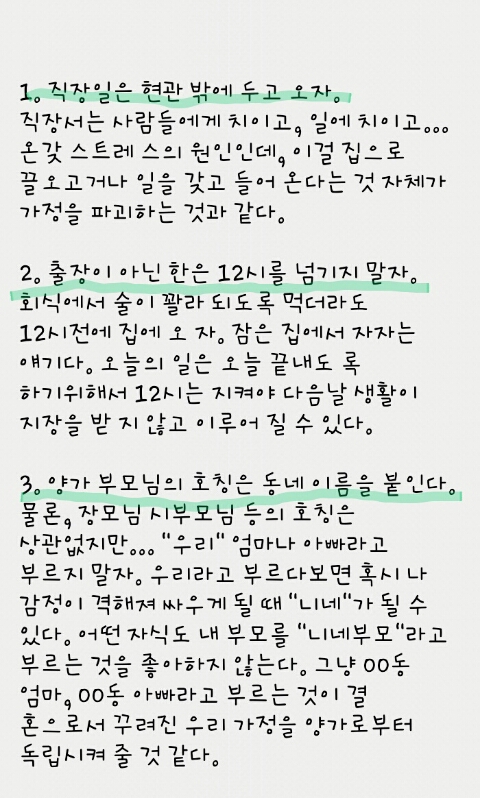 1. 직장일은 현관 밖에 두고 오자.
직장서는 사람들에게 치이고, 일에 치이고...
온갖 스트레스의 원인인데, 이걸 집으로
끌오고거나 일을 갖고 들어 온다는 것 자체가
가정을 파괴하는 것과 같다.
2. 출장이 아닌 한은 12시를 넘기지 말자.
회식에서 술이 꽐라 되도록 먹더라도
12시전에 집에 오 자. 잠은 집에서 자자는
얘기다. 오늘의 일은 오늘 끝내도 록
하기위해서 12시는 지켜야 다음날 생활이
지장을 받 지 않고 이루어 질 수 있다.
3. 양가 부모님의 호칭은 동네 이름을 붙인다.
물론, 장모님 시부모님 등의 호칭은
상관없지만... "우리" 엄마나 아빠라고
부르지 말자. 우리라고 부르다보면 혹시 나
감정이 격해져 싸우게 될 때 "니네"가 될 수
있다. 어떤 자식도 내 부모를 "니네부모"라고
부르는 것을 좋아하지 않는다. 그냥 OO동
엄마, OO동 아빠라고 부르는 것이 결
혼으로서 꾸려진 우리 가정을 양가로부터
독립시켜 줄 것 같다.